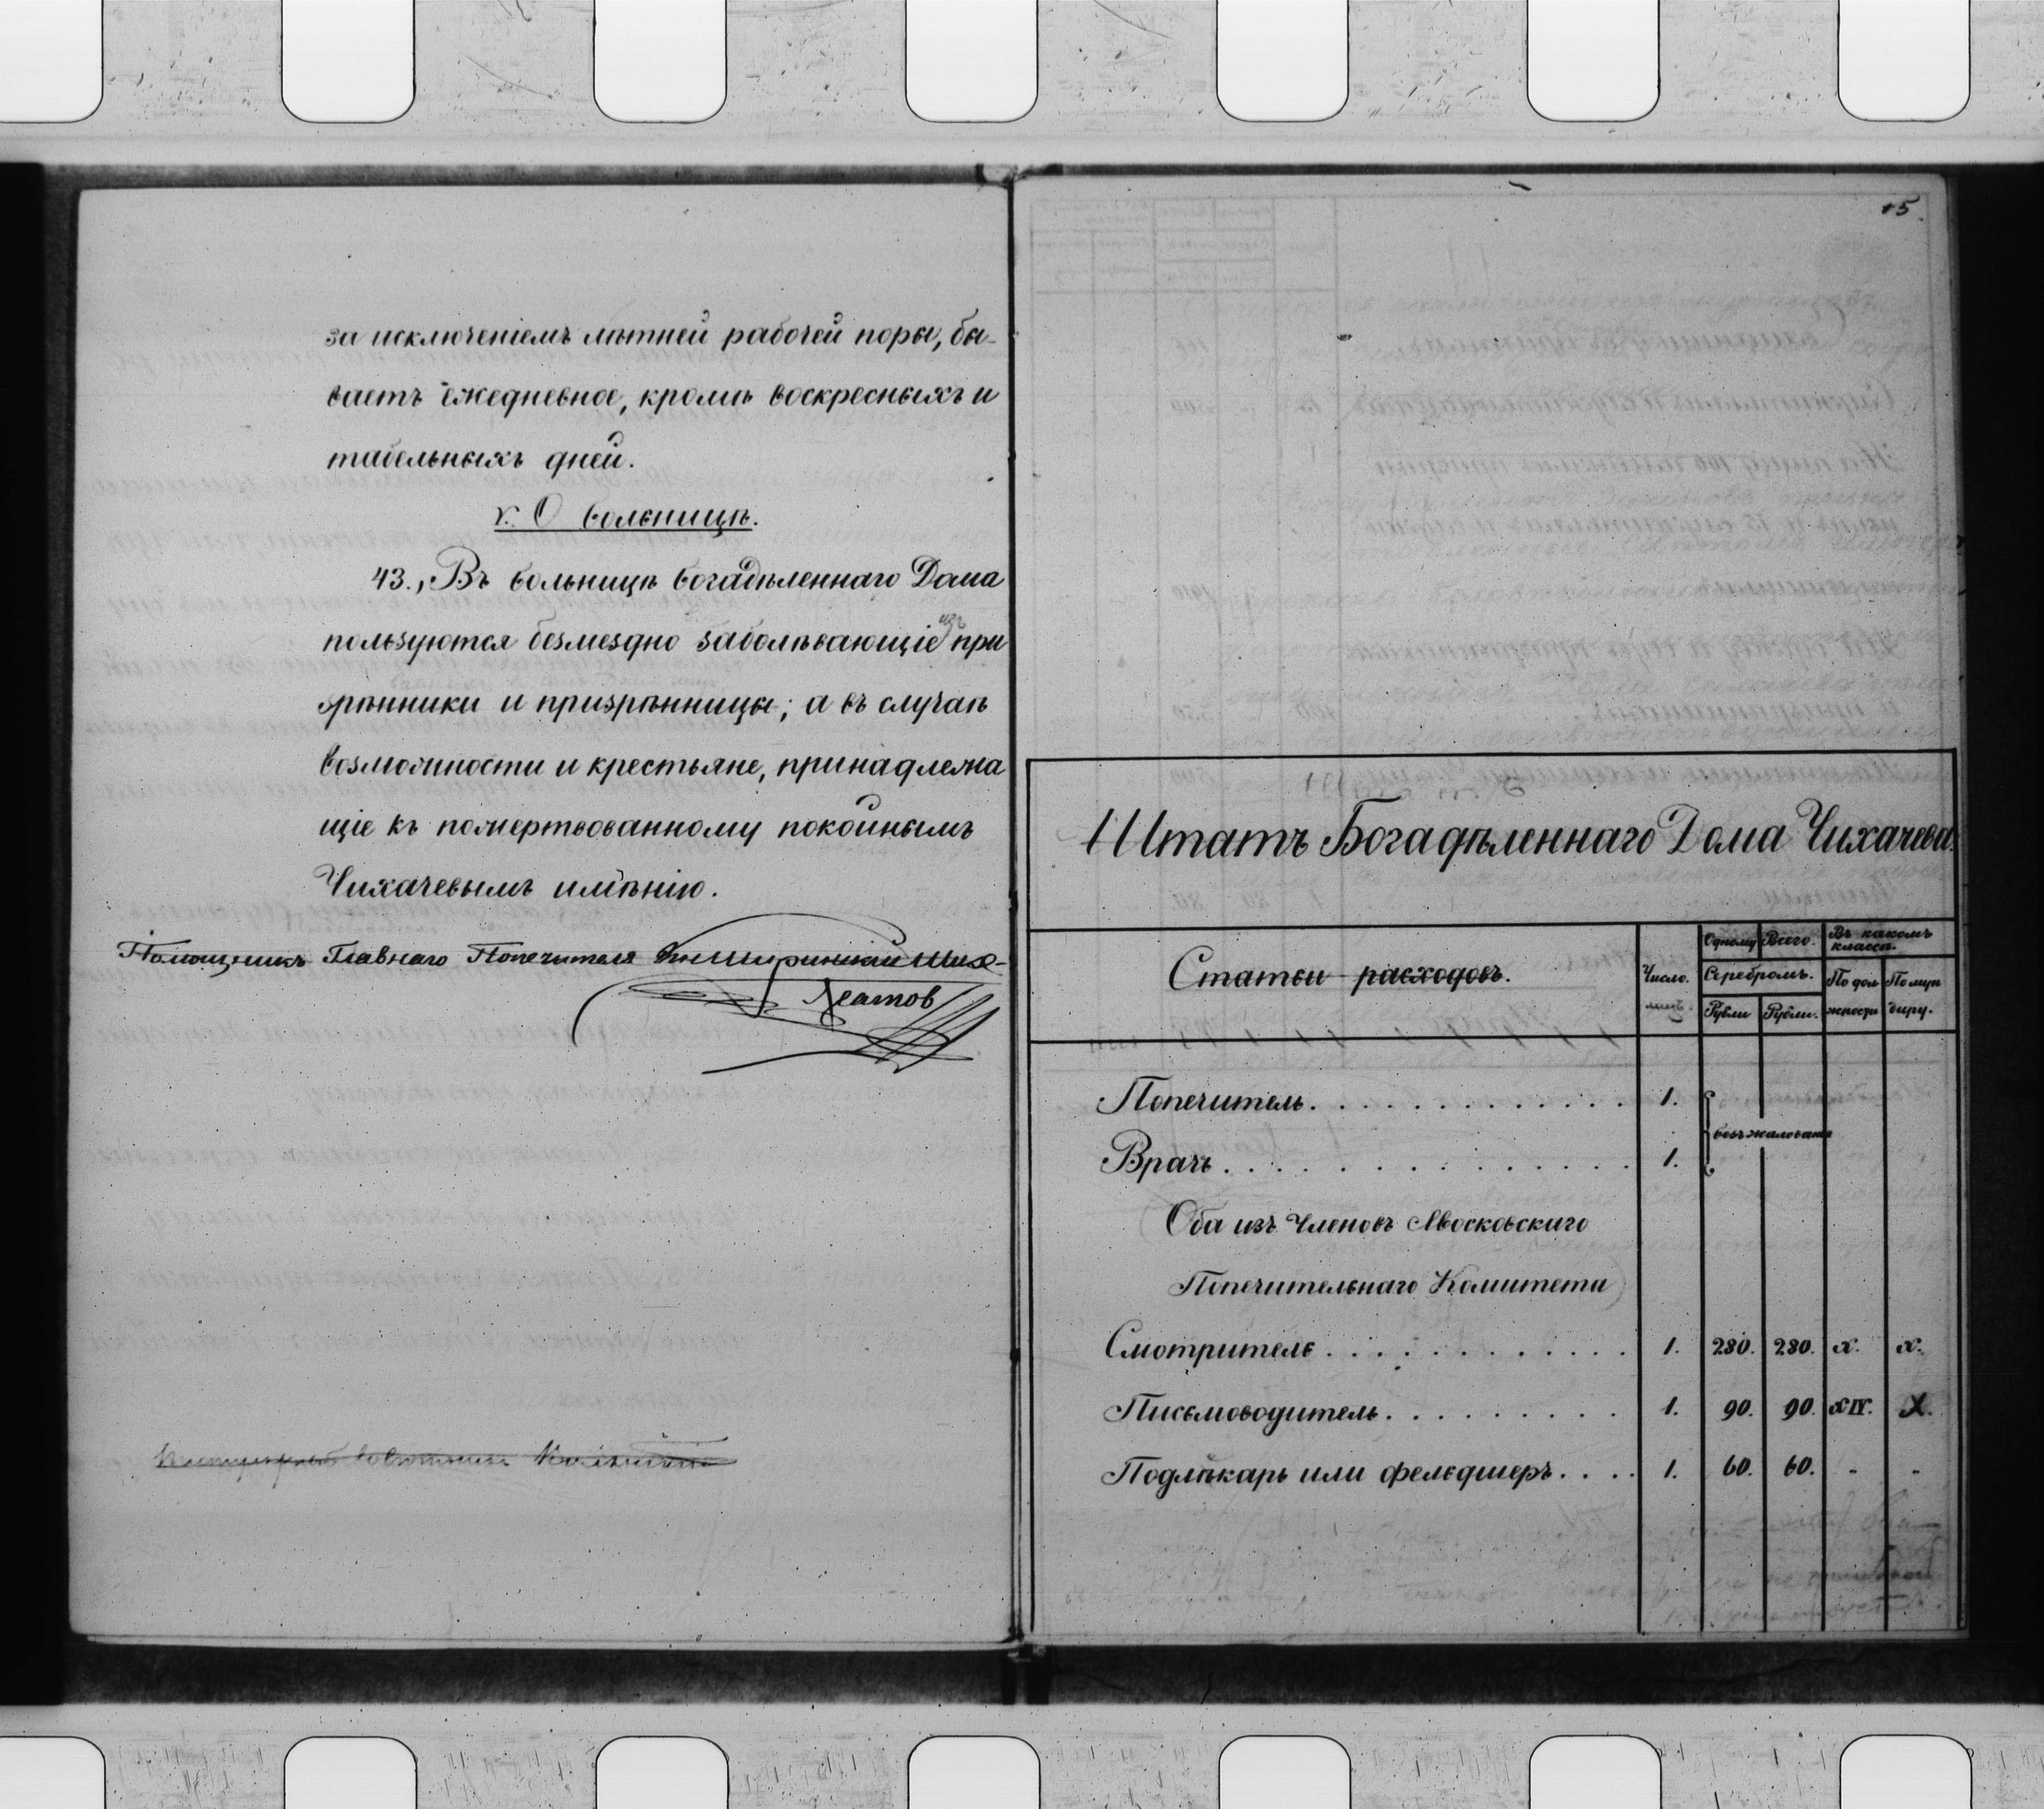 за исключеніемъ лѣтней рабочей поры, бы-
ваетъ ежедневное, кромѣ воскресныхъ и
табельныхъ дней.
V. О больницѣ.
43., Въ больницѣ богадѣленнаго Дома
пользуются безмездно заболѣвающіе изъ при
зрѣнники и призрѣнницы; а въ случаѣ
возможности и крестьяне, принадлежа
щіе къ пожертвованному покойнымъ
Чихачевымъ имѣнію.
Помощникъ Главнаго Попечителя Кн Ширинскій Ших-
матов
15.
Штатъ Богадѣленнаго Дома Чихачева.
Статьи расходовъ.
Число лицъ.
Одному Всего.
Серебромъ.
Рубли Рубли.
Въ какомъ классѣ.
По дол жности
По мун диру.
Попечитель. . . . . . . . . . . . . 1.
безъ жалованья
Врачъ. . . . . . . . . . . . . . . . 1.
(Оба изъ Членовъ Московскаго
Попечительнаго Комитета)
Смотритель . . . . . . . . . . . . 1. 280. 280. X. X.
Письмоводитель. . . . . . . . . . 1. 90. 90. XIV. X.
Подлѣкарь или фельдшеръ. . . . 1. 60. 60. - -